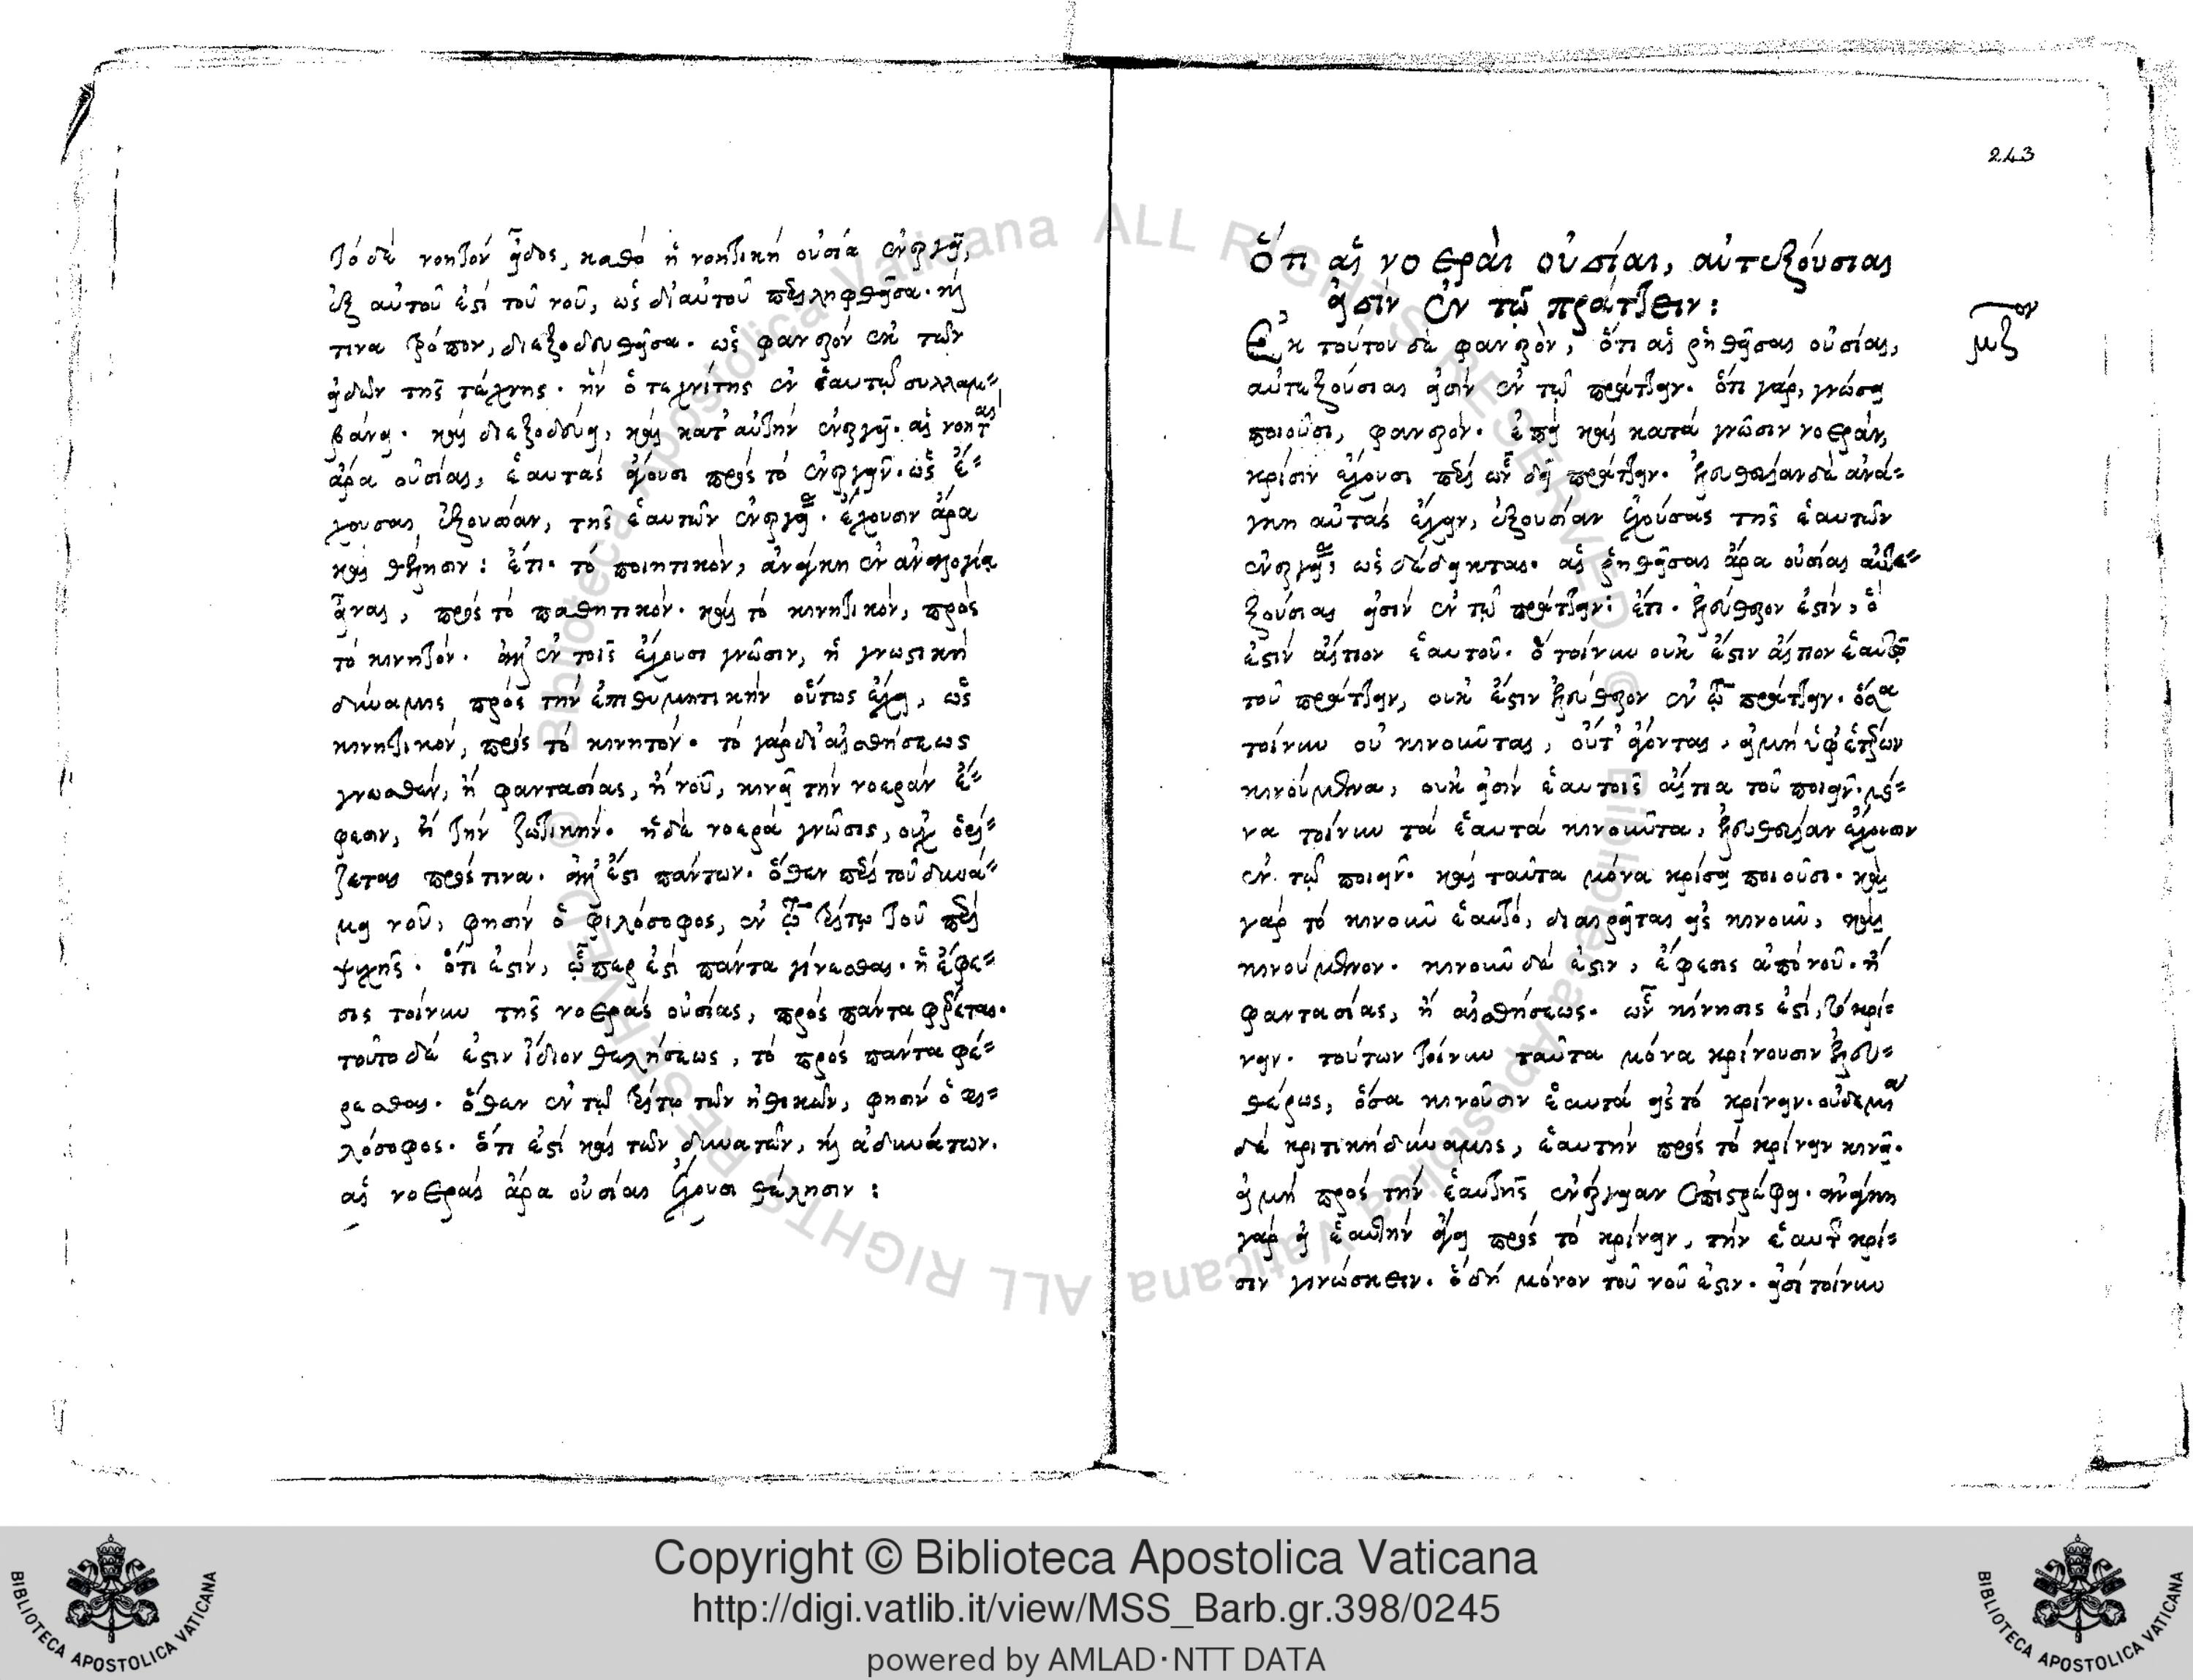 τὸ δὲ νοητὸν εἶδος, καθὸ ἡ νοητικὴ οὐσία ἐνεργεῖ,
ἐξ αὐτοῦ ἐστὶ τοῦ νοῦ, ὡς δι' αὐτοῦ περιληφθεῖσα. καὶ
τινα τρόπον, διεξοδευθεῖσα. ὡς φανερὸν ἐκ τῶν
εἰδῶν τῆς τέχνης. ἣν ὁ τεχνίτης ἐν ἑαυτῷ συλλαμ-
βάνει. καὶ διεξοδεύει, καὶ κατ' αὐτὴν ἐνεργεῖ. αἱ νοητ
ἄρα οὐσίαι, ἑαυτὰς ἄγουσι πρὸς τὸ ἐνεργεῖν. ὡς ἔ-
χουσαι ἐξουσίαν, τῆς ἑαυτῶν ἐνεργείας. ἔχουσιν ἄρα
καὶ θέλησιν: ἔτι. τὸ ποιητικὸν, ἀνάγκη ἐν ἀναλογίᾳ
εἶναι, πρὸς τὸ παθητικὸν. καὶ τὸ κινητικὸν, πρὸς
τὸ κινητόν. ἀλλ' ἐν τοῖς ἔχουσι γνῶσιν, ἡ γνωστικὴ
δύναμις πρὸς τὴν ἐπιθυμητικὴν οὕτως ἔχει, ὡς
κινητικὸν, πρὸς τὸ κινητόν. τὸ γὰρ δι' αἰσθήσεως
γνωσθὲν, ἢ φαντασίας, ἢ νοῦ, κινεῖ τὴν νοερὰν ἔ-
φεσιν, ἢ τὴν ζωτικήν. ἡ δὲ νοερὰ γνῶσις, οὐχ ὁρί-
ζεται πρός τινα. ἀλλ' ἔστι πάντων. ὅθεν περὶ τοῦ δυνά-
μει νοῦ, φησὶν ὁ φιλόσοφος, ἐν τῷ τρίτῳ τοῦ περὶ
ψυχῆς. ὅτι ἐστὶν, ᾧπερ ἐστὶ πάντα γίνεσθαι. ἡ ἔφε-
σις τοίνυν τῆς νοερᾶς οὐσίας, πρὸς πάντα φέρεται.
τοῦτο δέ ἐστιν ἴδιον θελήσεως, τὸ πρὸς πάντα φέ-
ρεσθαι. ὅθεν ἐν τῷ τρίτῳ τῶν ἠθικῶν, φησὶν ὁ φι-
λόσοφος. ὅτι ἐστὶ καὶ τῶν δυνατῶν, καὶ ἀδυνάτων.
αἱ νοεραὶ ἄρα οὐσίαι ἔχουσι θέλησιν:
243
Ὅτι αἱ νοεραὶ οὐσίαι, αὐτεξούσιαι
εἰσὶν ἐν τῷ πράττειν:
μζον
Ἐκ τούτου δὲ φανερὸν, ὅτι αἱ ῥηθεῖσαι οὐσίαι,
αὐτεξούσιαι εἰσὶν ἐν τῷ πράττειν. ὅτι γὰρ, γνώσει
ποιοῦσι, φανερὸν. ἐπεὶ καὶ κατὰ γνῶσιν νοερὰν,
κρίσιν ἔχουσι περὶ ὧν δεῖ πράττειν. ἐλευθερίαν δὲ ἀνά-
γκη αὐτὰς ἔχειν, ἐξουσίαν ἐχούσας τῆς ἑαυτῶν
ἐνεργείας, ὡς δέδεικται. αἱ ῥηθεῖσαι ἄρα οὐσίαι αὐτε-
ξούσιαι εἰσὶν ἐν τῷ πράττειν: ἔτι. ἐλεύθερον ἐστὶν, ὅ
ἐστιν αἴτιον ἑαυτοῦ. ὃ τοίνυν οὐκ ἔστιν αἴτιον ἑαυτῷ
τοῦ πράττειν, οὐκ ἔστιν ἐλεύθερον ἐν τῷ πράττειν. ὅσα
τοίνυν οὐ κινοῦνται, οὔτ' ἄγονται, εἰ μὴ ὑφ' ἑτέρων
κινούμενα, οὐκ εἰσὶν ἑαυτοῖς αἴτια τοῦ ποιεῖν. μό-
να τοίνυν τὰ ἑαυτὰ κινοῦντα, ἐλευθερίαν ἔχουσιν
ἐν τῷ ποιεῖν. καὶ ταῦτα μόνα κρίσει ποιοῦσι. καὶ
γὰρ τὸ κινοῦν ἑαυτὸ, διαιρεῖται εἰς κινοῦν, καὶ
κινούμενον. κινοῦν δέ ἐστιν, ἔφεσις ἀπὸ νοῦ. ἢ
φαντασίας, ἢ αἰσθήσεως. ὧν κίνησις ἐστὶ, τὸ κρί-
νειν. τούτων τοίνυν ταῦτα μόνα κρίνουσιν ἐλευ-
θέρως, ὅσα κινοῦσιν ἑαυτὰ εἰς τὸ κρίνειν. οὐδεμία
δὲ κριτικὴ δύναμις, ἑαυτὴν πρὸς τὸ κρίνειν κινεῖ.
εἰ μὴ πρὸς τὴν ἑαυτῆς ἐνέργειαν ἐπιστρέφει. ἀνάγκη
γὰρ εἰ ἑαυτὴν ἄγει πρὸς τὸ κρίνειν, τὴν ἑαυτῆς κρί-
σιν γινώσκειν. ὃ δὴ μόνον τοῦ νοῦ ἐστιν. εἰσὶ τοίνυν
Copyright © Biblioteca Apostolica Vaticana
http://digi.vatlib.it/view/MSS_Barb.gr.398/0245
powered by AMLAD·NTT DATA
BIBLIOTECA APOSTOLICA VATICANA
BIBLIOTECA APOSTOLICA VATICANA